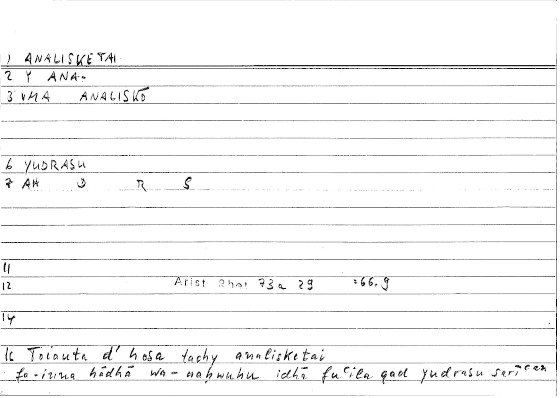 1 ANALISKETAI
2 Y ANA-
3 VMA ANALISKŌ
6 YUDRASU
7 AH D R S
11
12 Arist Rhet 73a 29 =66.9
14
16 Toiauta d' hosa tachy analisketai
fa-inna hādhā wa-naḥwuhu idhā fuʿila qad yudrasu sarīʿan